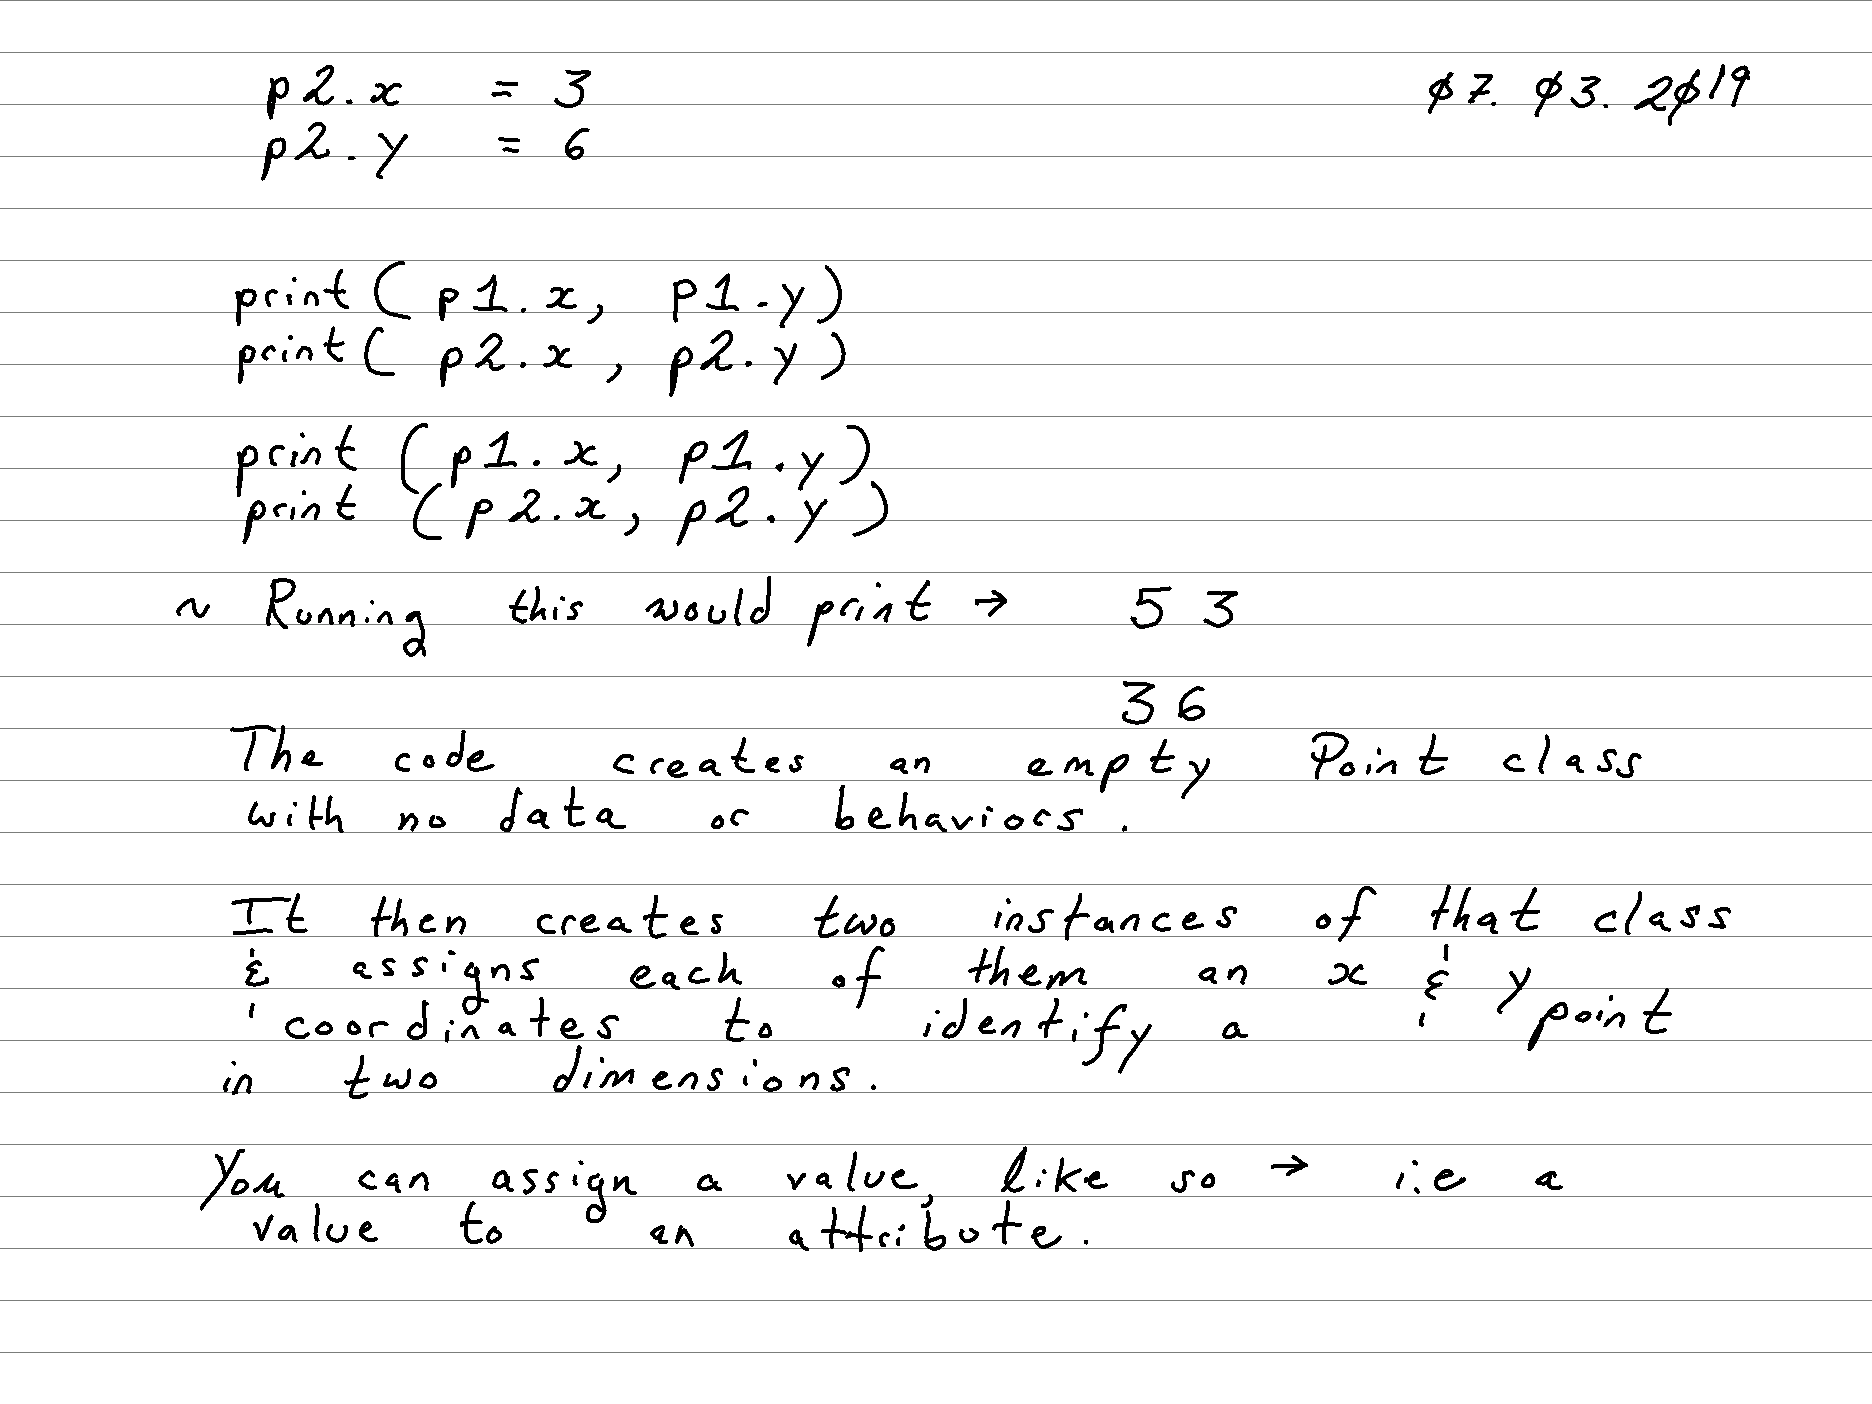 p2.x = 3 07. 03. 2019
p2.y = 6
print( p1.x, p1.y)
print( p2.x , p2.y )
print (p1.x, p1.y)
print (p2.x, p2.y )
~ Running this would print → 5 3
3 6
The code creates an empty Point class
with no data or behaviors .
It then creates two instances of that class
& assigns each of them an x & y
coordinates to identify a point
in two dimensions.
You can assign a value, like so → i.e a
value to an attribute.